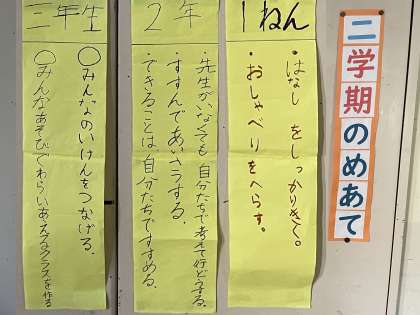 二学期のめあて
1ねん
・はなし をしっかりきく。
・おしゃべりをへらす。
2年
・先生がいなくても自分たちで考えて行どうする。
・すすんであいさつする。
・できることは自分たちですすめる。
三年生
○みんなのいけんをつなげる。
○みんなあそびでわらいあえるクラスを作る